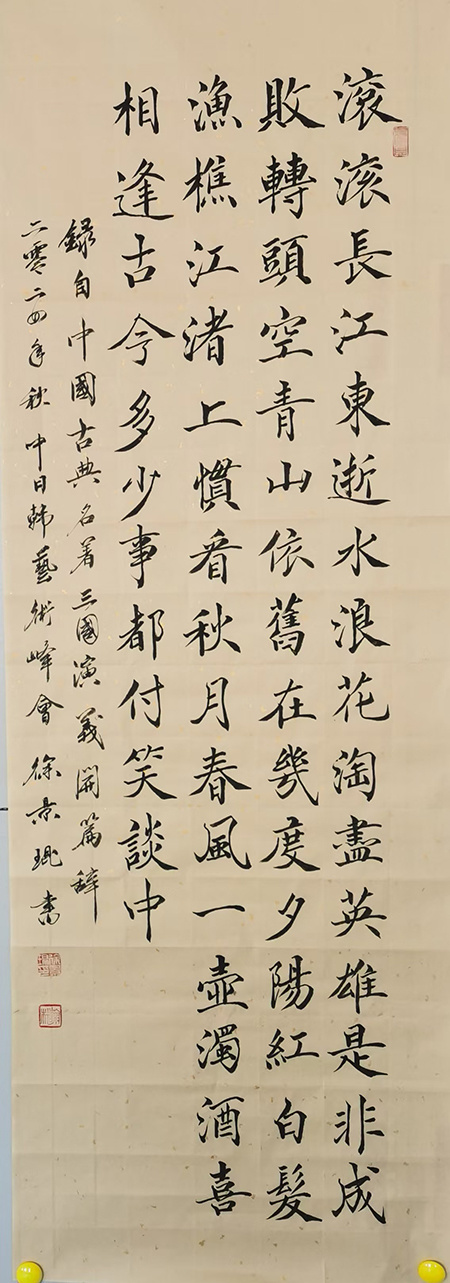 滚滚長江東逝水浪花淘盡英雄是非成
敗轉頭空青山依舊在幾度夕陽紅白髮
漁樵江渚上慣看秋月春風一壺濁酒喜
相逢古今多少事都付笑談中
録自中國古典名著三國演義開篇辞
二零二四年秋中日韩藝術峰會徐京琨書